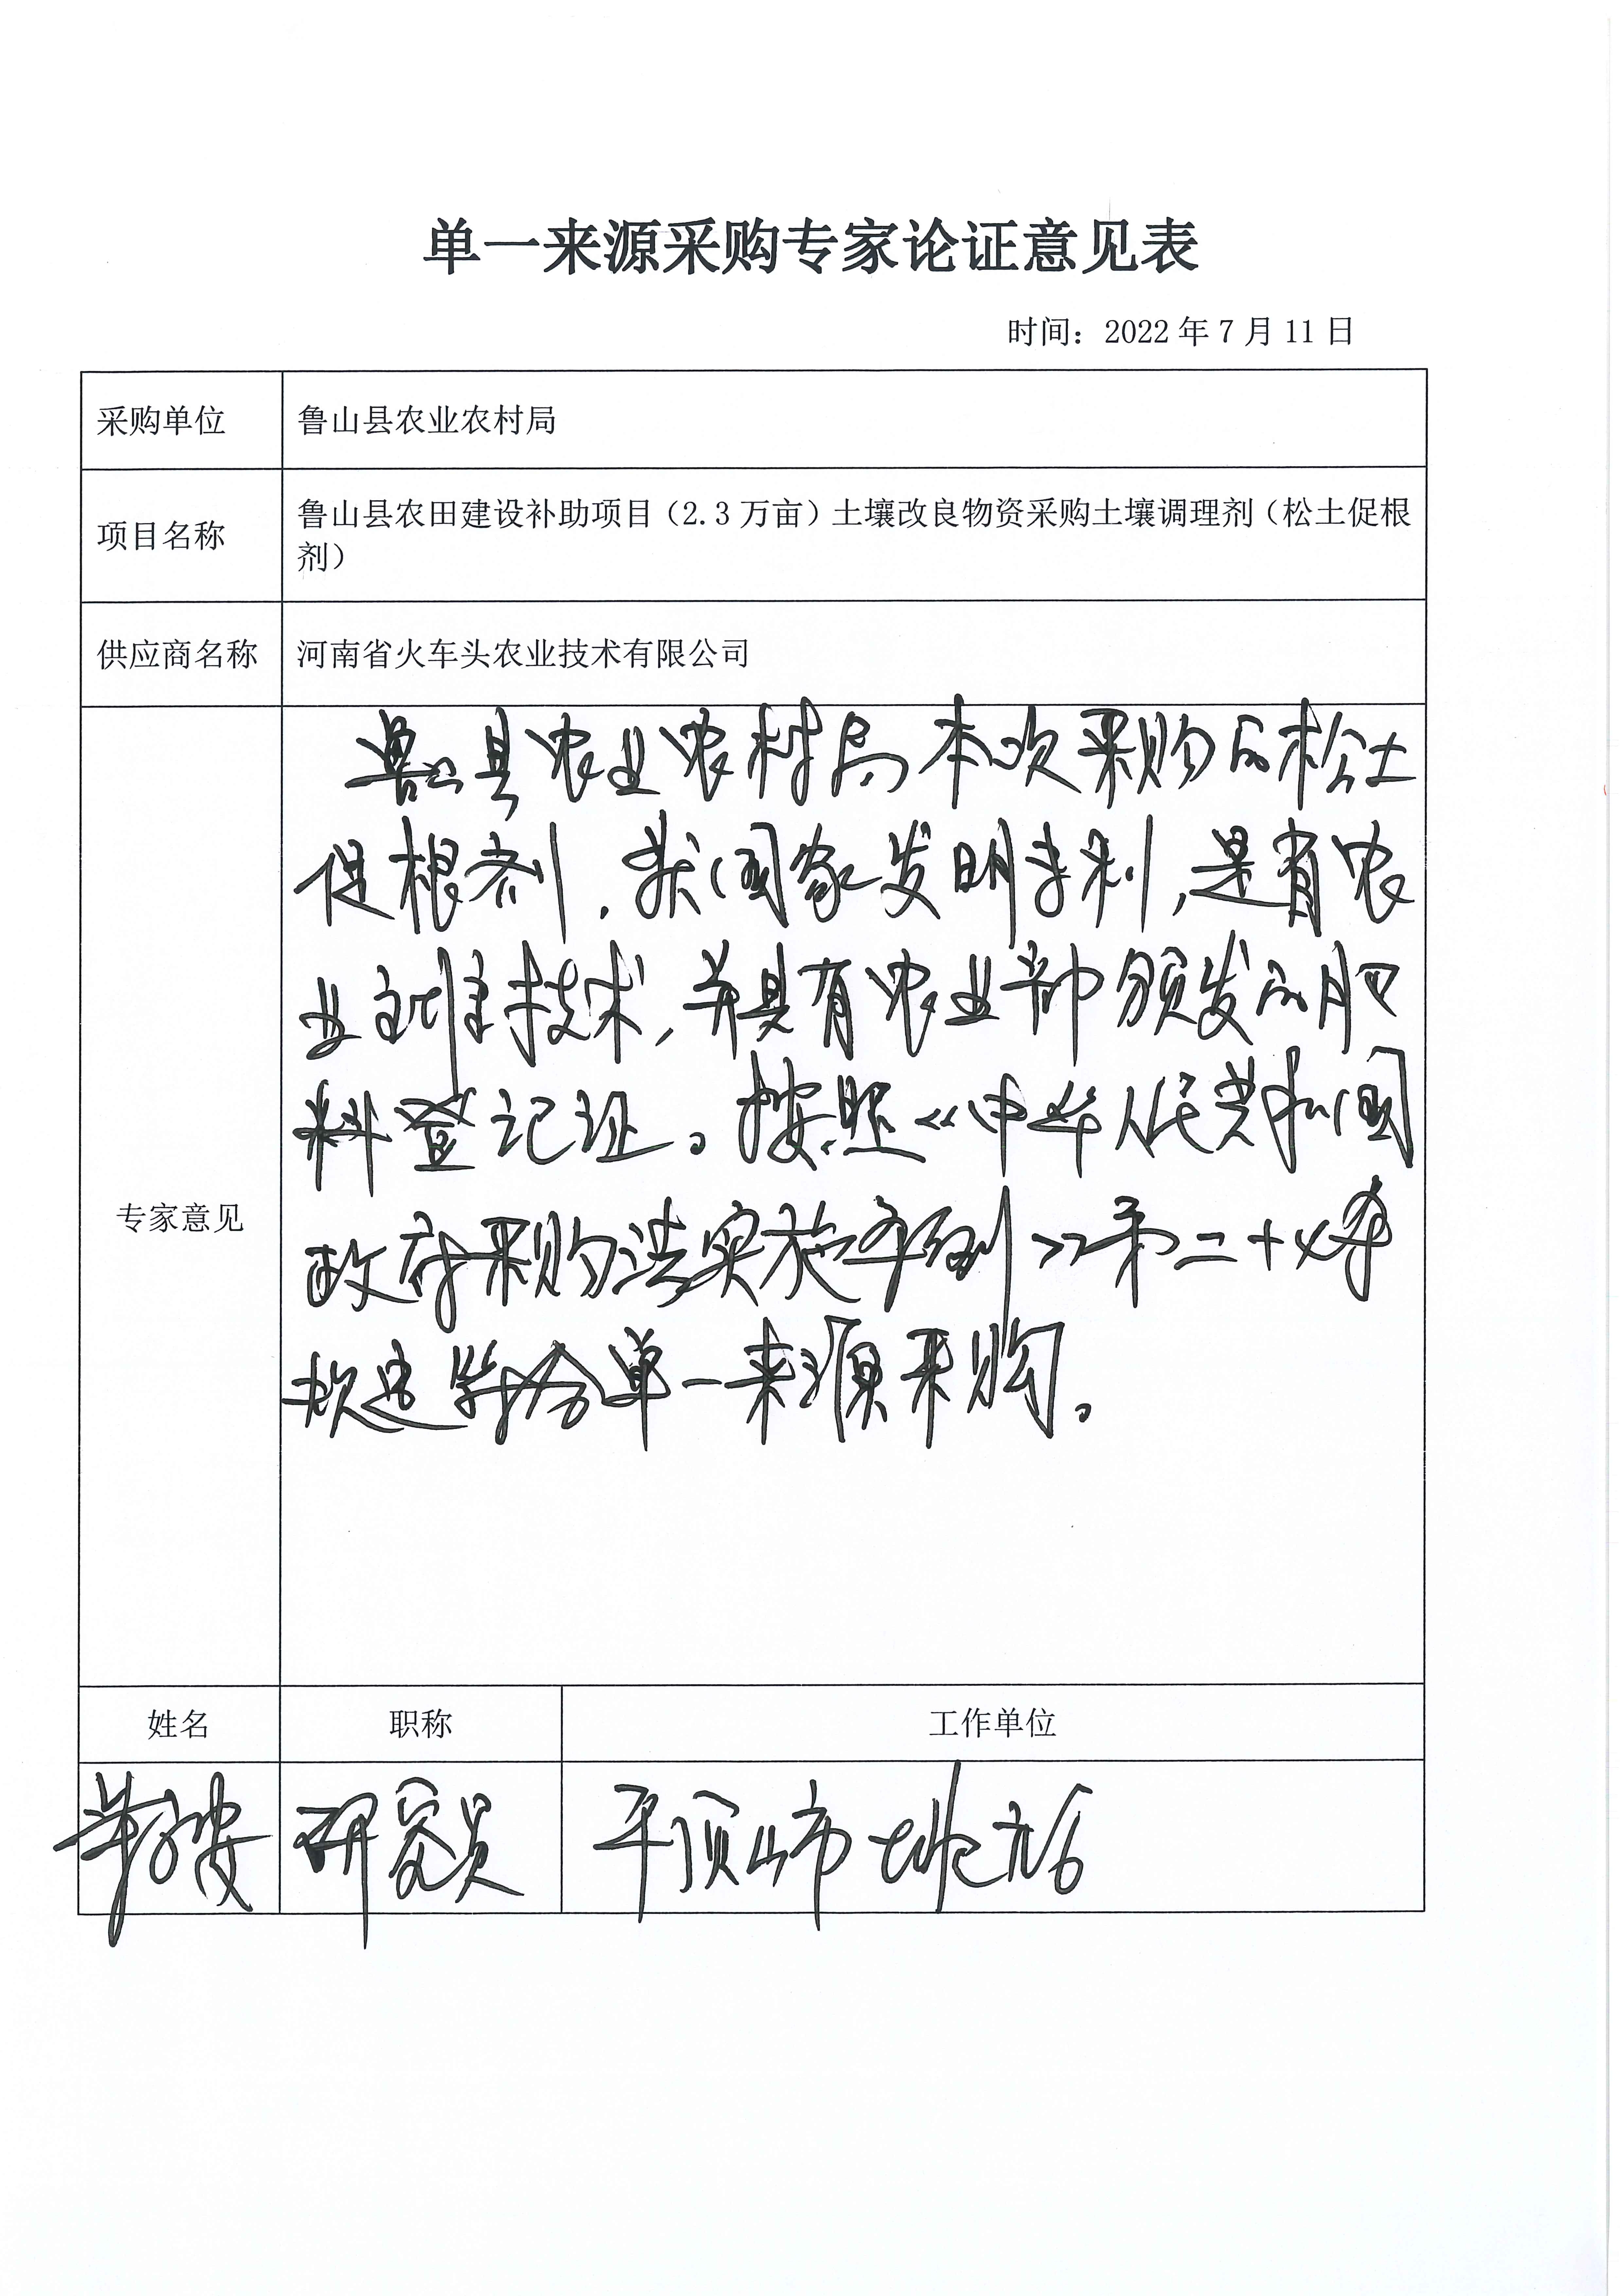 单一来源采购专家论证意见表
时间：2022年7月11日
采购单位
鲁山县农业农村局
项目名称
鲁山县农田建设补助项目（2.3万亩）土壤改良物资采购土壤调理剂（松土促根
剂）
供应商名称
河南省火车头农业技术有限公司
专家意见
鲁山县农业农村局本次采购的松土
促根剂，获国家发明专利，是省农
业主推技术，并具有农业部颁发的肥
料登记证。按照《中华人民共和国
政府采购法实施条例》第二十七条
规定符合单一来源采购。
姓名
职称
工作单位
研究员
平顶山市